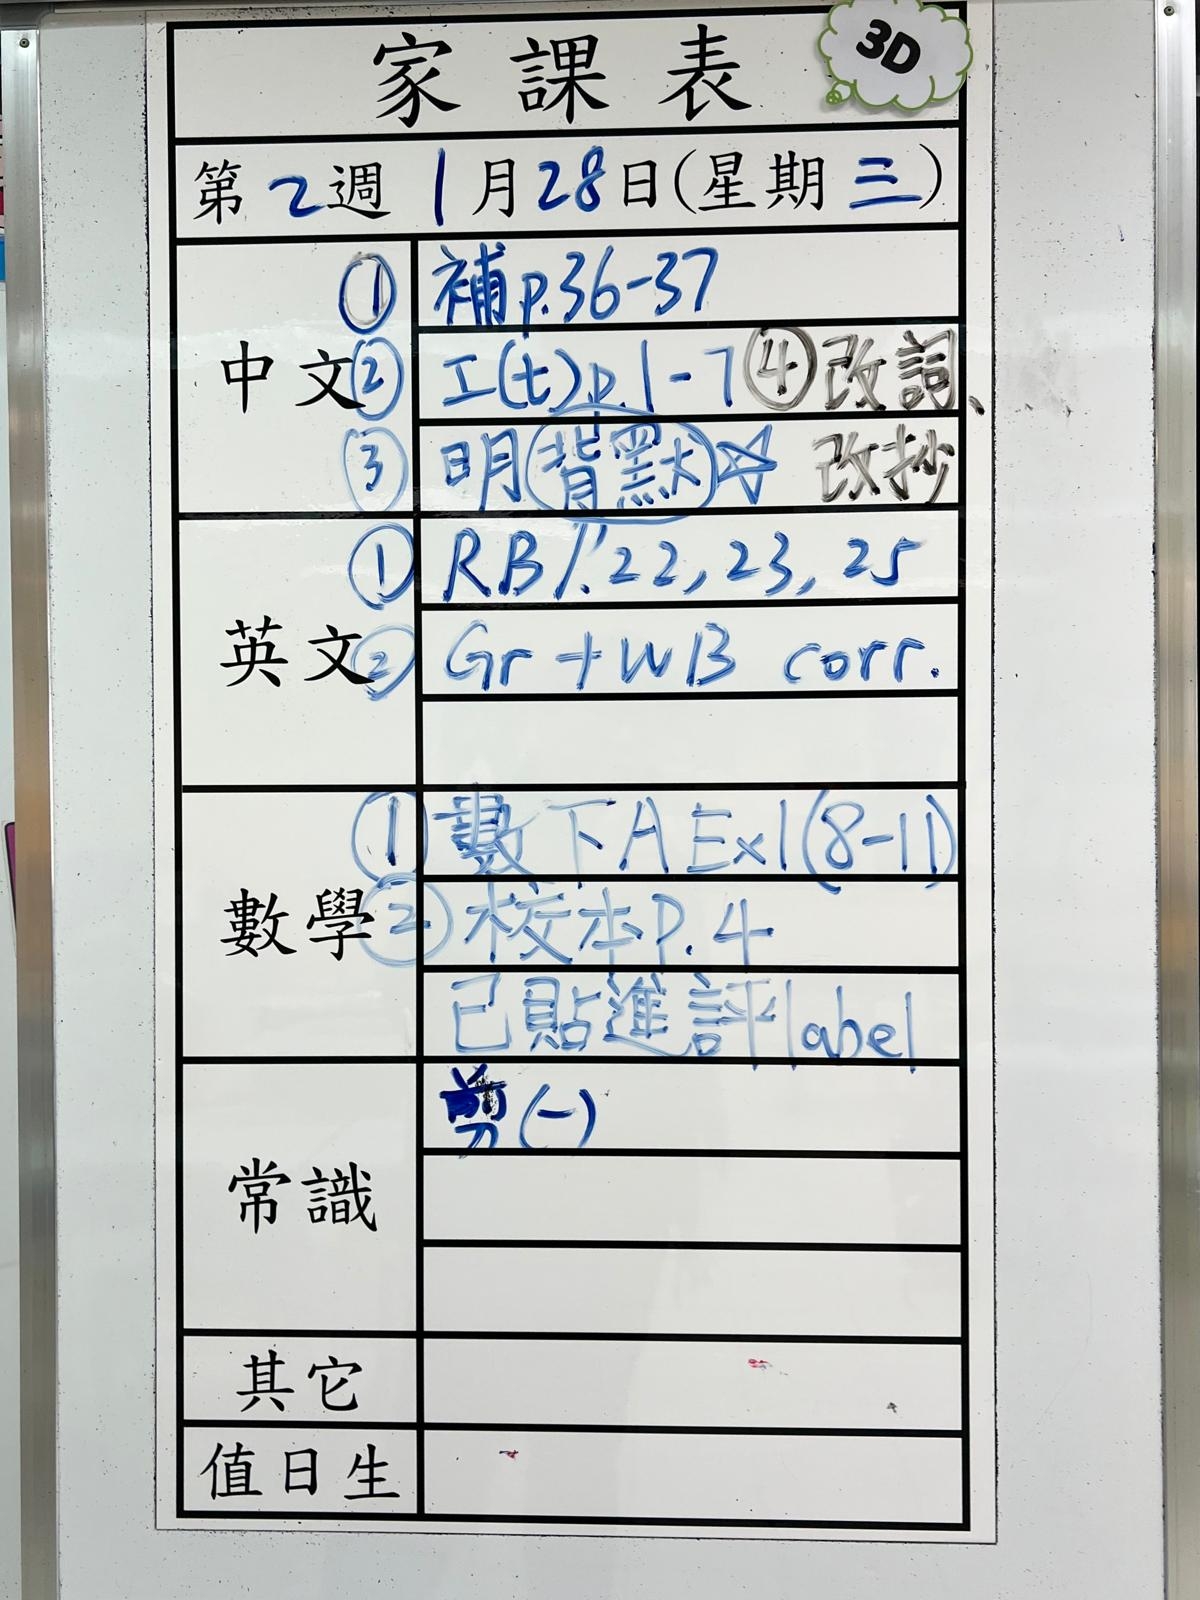 家課表
3D
第2週 1月28日(星期三)
中文
① 補p.36-37
② 工(七)p.1-7 ④改詞、
③ 明背默☆ 改抄
英文
① RB P.22, 23, 25
② Gr + WB corr.
數學
① 數下A Ex1(8-11)
② 校本P.4
已貼進評label
常識
剪(一)
其它
值日生